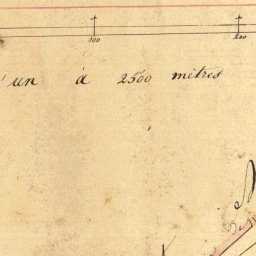 100 200
un à 2500 mètres